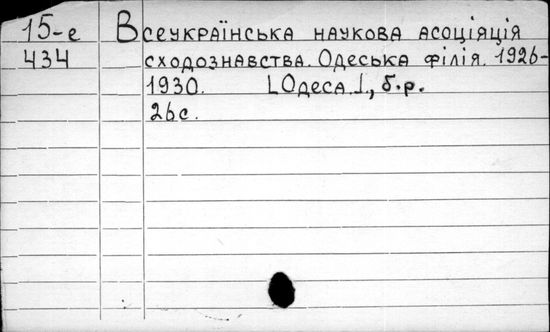 15-е Всеукраїнська наукова асоціяція
434 сходознавства. Одеська філія. 1926-
1930. [Одеса.], б.р.
26с.